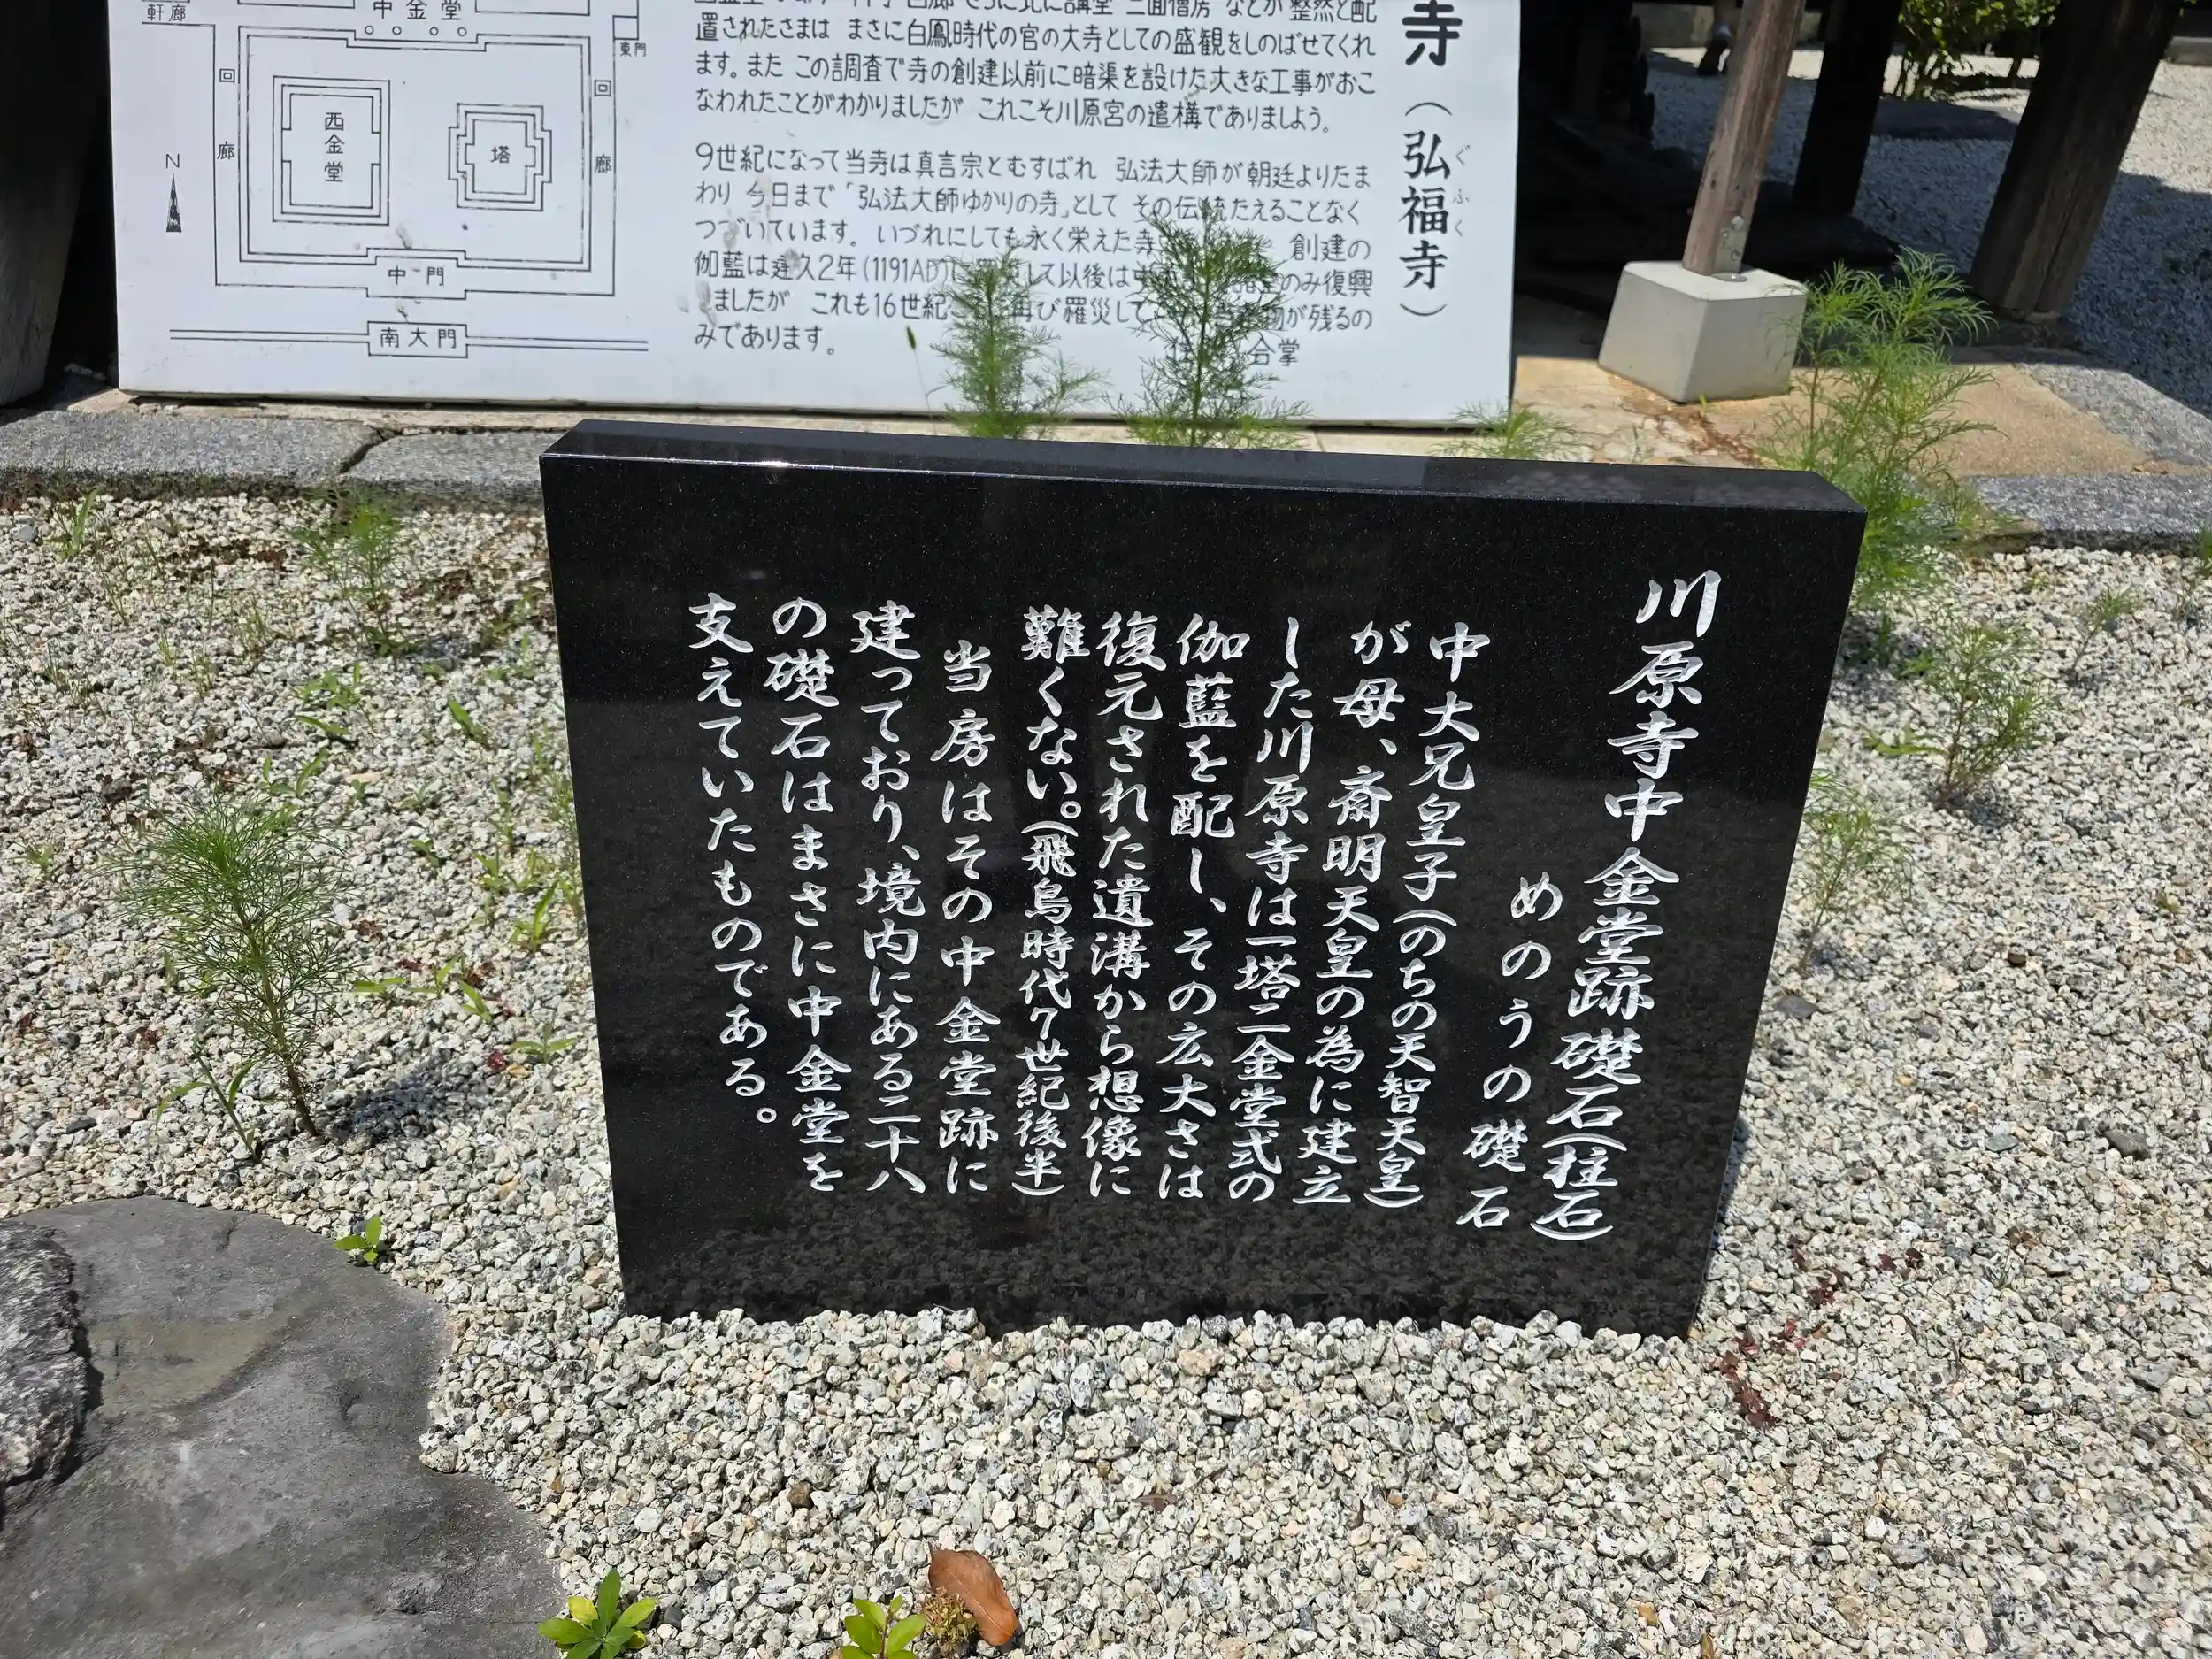 軒廊
中金堂
東門
回
廊
回
廊
西
金
堂
塔
N
中門
南大門
寺(弘福寺)
ぐふく
置されたさまは まさに白鳳時代の官の大寺としての盛観をしのばせてくれ
ます。また この調査で寺の創建以前に暗渠を設けた大きな工事がおこ
なわれたことがわかりましたが これこそ川原宮の遺構でありましよう。
9世紀になって当寺は真言宗とむすばれ 弘法大師が朝廷よりたま
わり 今日まで「弘法大師ゆかりの寺」として その伝統たえることなく
つづいています。いづれにしても永く栄えた寺 創建の
伽藍は建久2年(1191AD)に して以後は のみ復興
しましたが これも16世紀 再び羅災して が残るの
みであります。
合掌
川原寺中金堂跡礎石(柱石)
めのうの礎石
中大兄皇子(のちの天智天皇)
が母、斎明天皇の為に建立
した川原寺は一塔二金堂式の
伽藍を配し、その広大さは
復元された遺溝から想像に
難くない。(飛鳥時代7世紀後半)
当房はその中金堂跡に
建っており、境内にある二十八
の礎石はまさに中金堂を
支えていたものである。